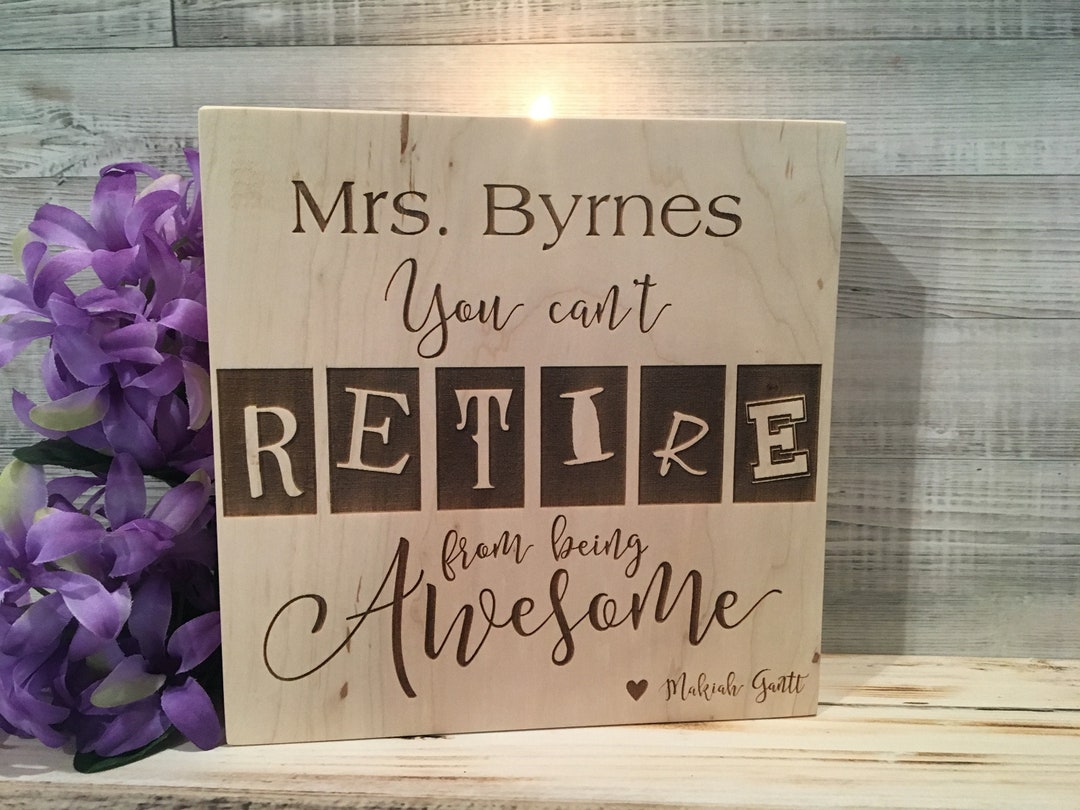 Mrs. Byrnes
You can't
RETIRE
from being
Awesome
♥ Makiah Gantt